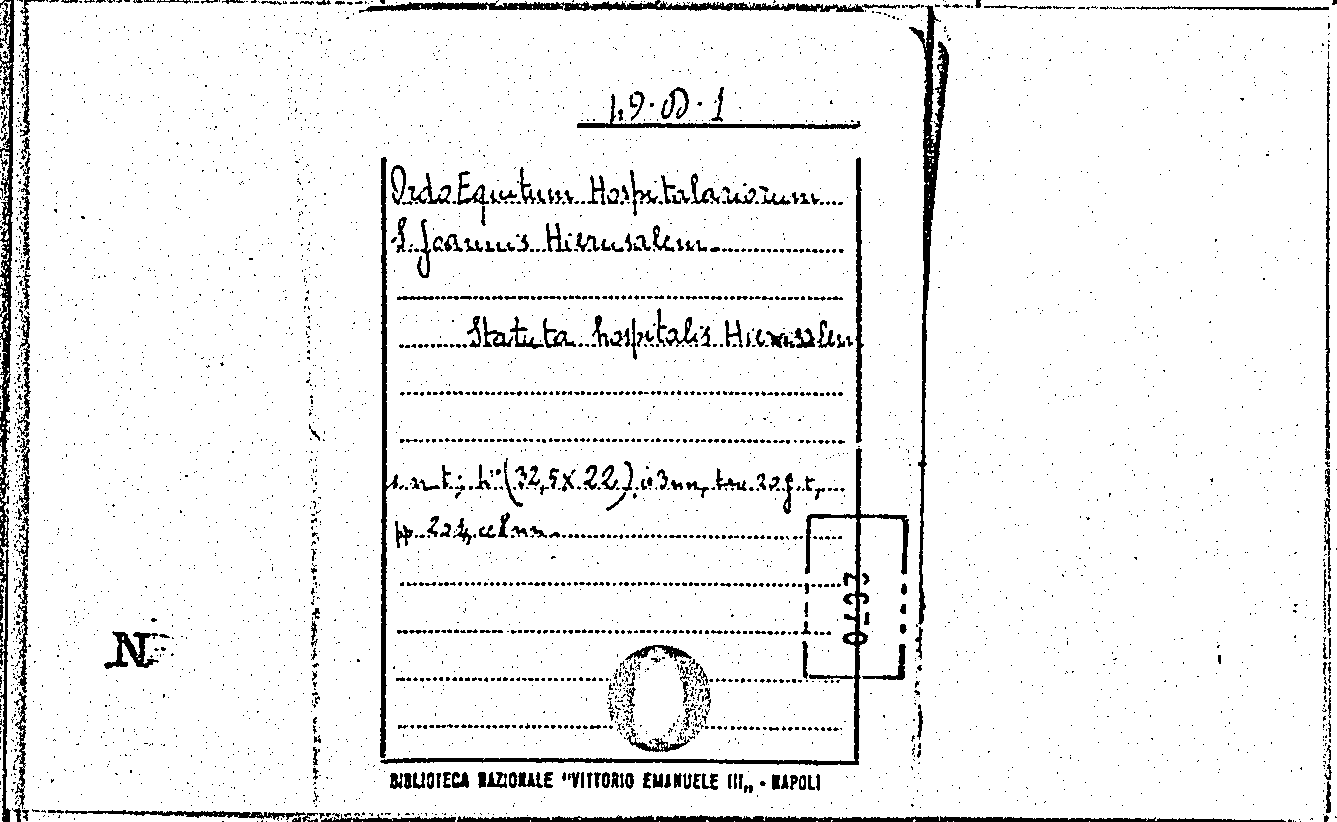 Ordo Equitum Hospitalariorum
S. Joannis Hierusalem
Statuta hospitalis Hierusalem
s. n. t.; (32,5 x 22)
pp.
N
BIBLIOTECA NAZIONALE "VITTORIO EMANUELE III„ - NAPOLI